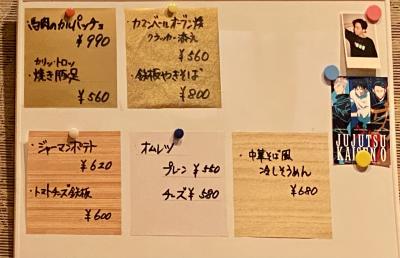 白肉のカルパッチョ
¥990
カリッ・トロッ
・焼き豚足
¥560
カマンベールオーブン焼
クラッカー添え
¥560
・鉄板やきそば
¥800
・ジャーマンポテト
¥620
・トマトチーズ鉄板
¥600
オムレツ
プレーン ¥550
チーズ ¥580
・中華そば風
冷しそうめん
¥680
JUJUTSU
KAISEN 0